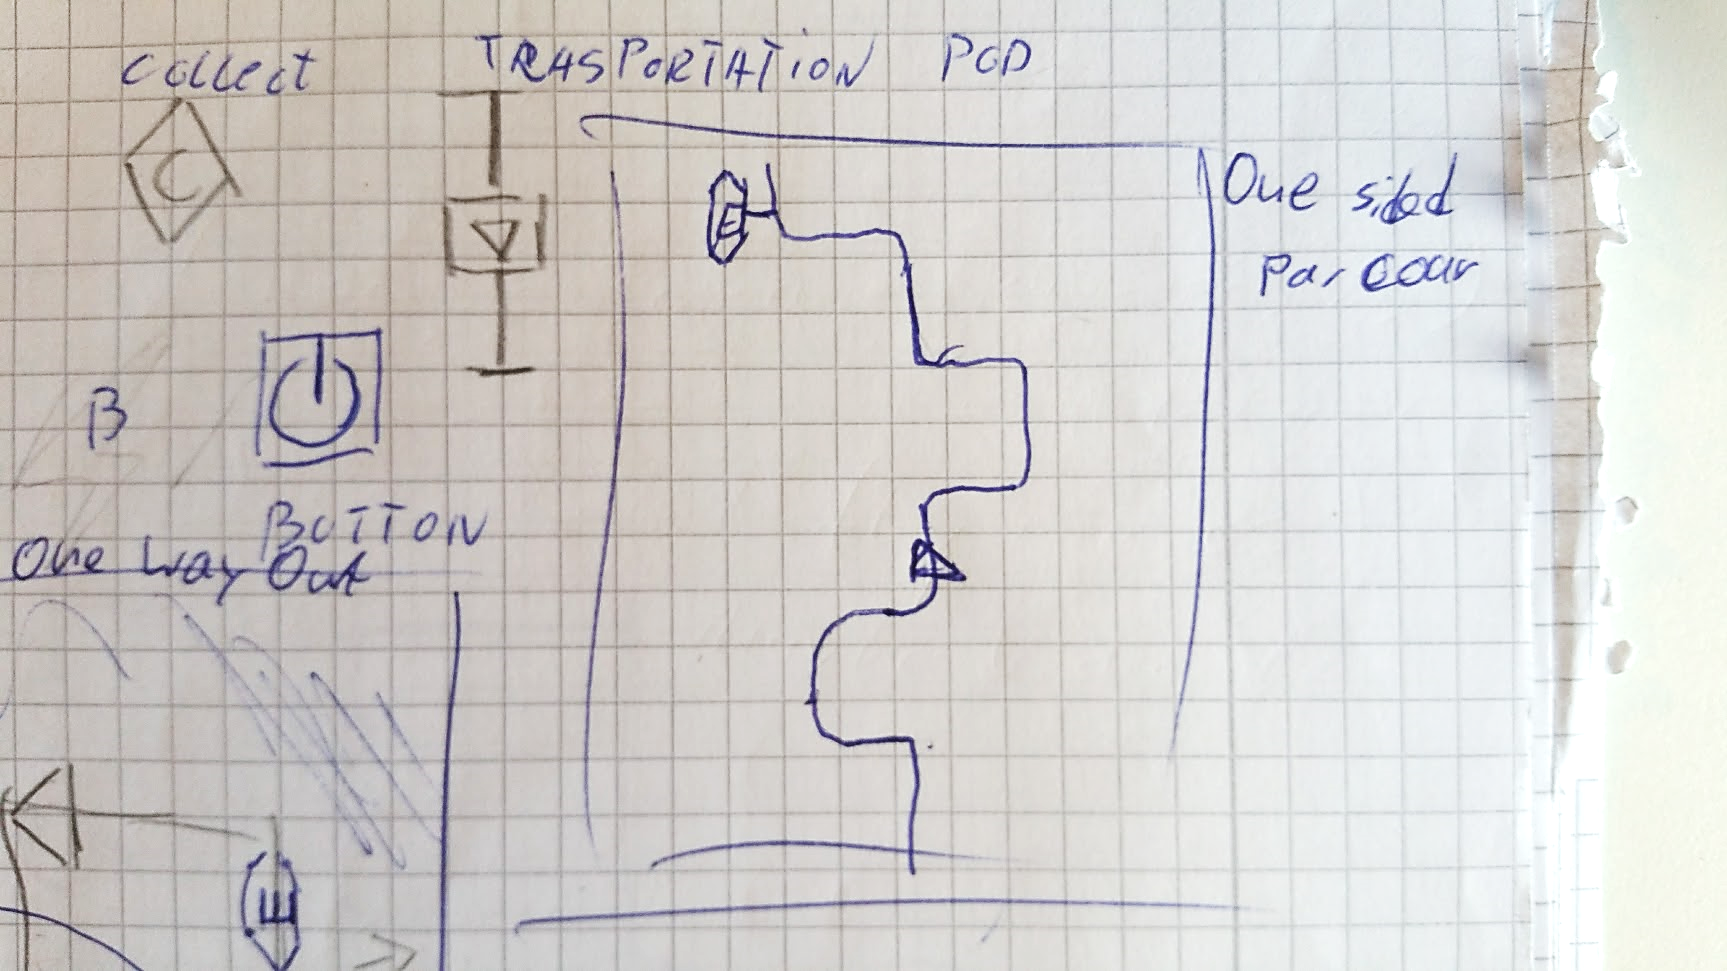 collect
TRASPORTATiON POD
C
E
One sided
Parcour
B
BUTTON
One Way Out
E